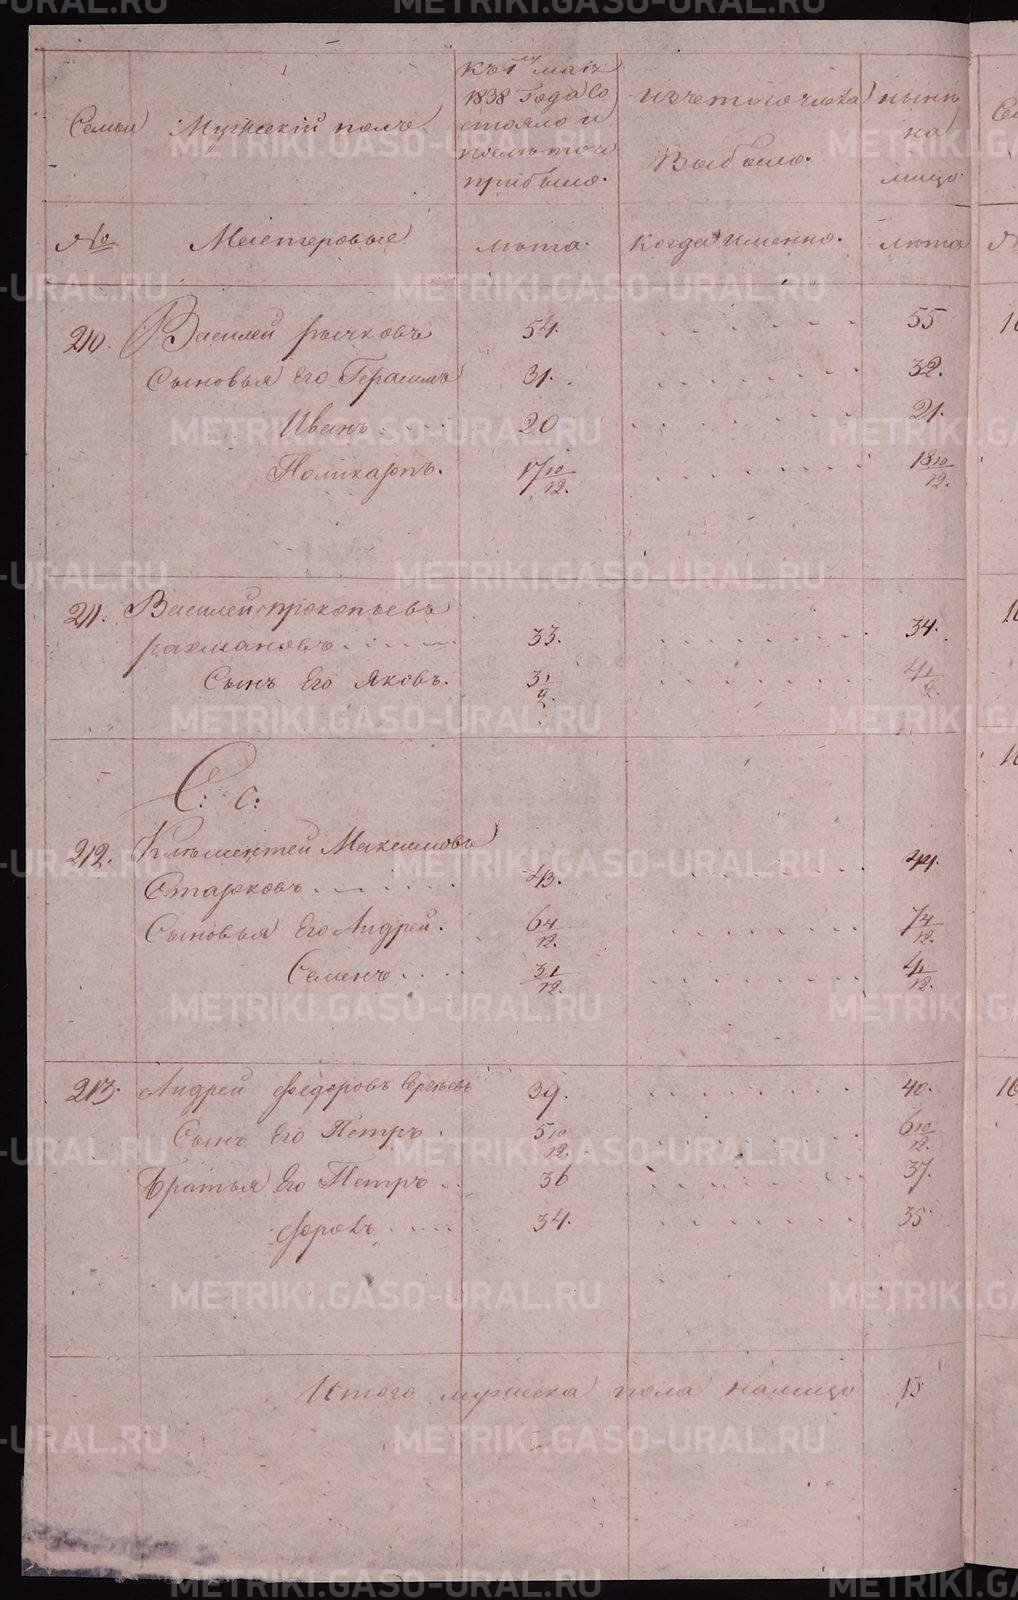 Семьи Мужескій полъ. Къ 1му маія 1838 Года Состояло и послѣ того прибыло. Изъ того числа выбыло. нынѣ на лицо
№ Мастеровые лѣта. Когда именно. лѣта
210. Василей рычковъ 54. 55
Сыновья Его Герасимъ 31. 32.
Иванъ 20 21.
Поликарпъ. 17 10/12. 18 10/12.
211. Василей прокопьевъ
рахмановъ 33. 34.
Сынъ Его Яковъ. 3 1/2. 4 1/2.
С: с:
212. Клѣментей Максимовъ
Старковъ 43. 44.
Сыновья Его Андрей. 6 4/12. 7 4/12.
Семенъ 3 1/12. 4 1/12.
213. Андрей федоровъ 39. 40.
Сынъ Его Петръ. 5 10/12. 6 10/12.
Братья Его Петръ 36 37.
34. 35
Итого мужеска пола налицо 13
METRIKI.GASO-URAL.RU